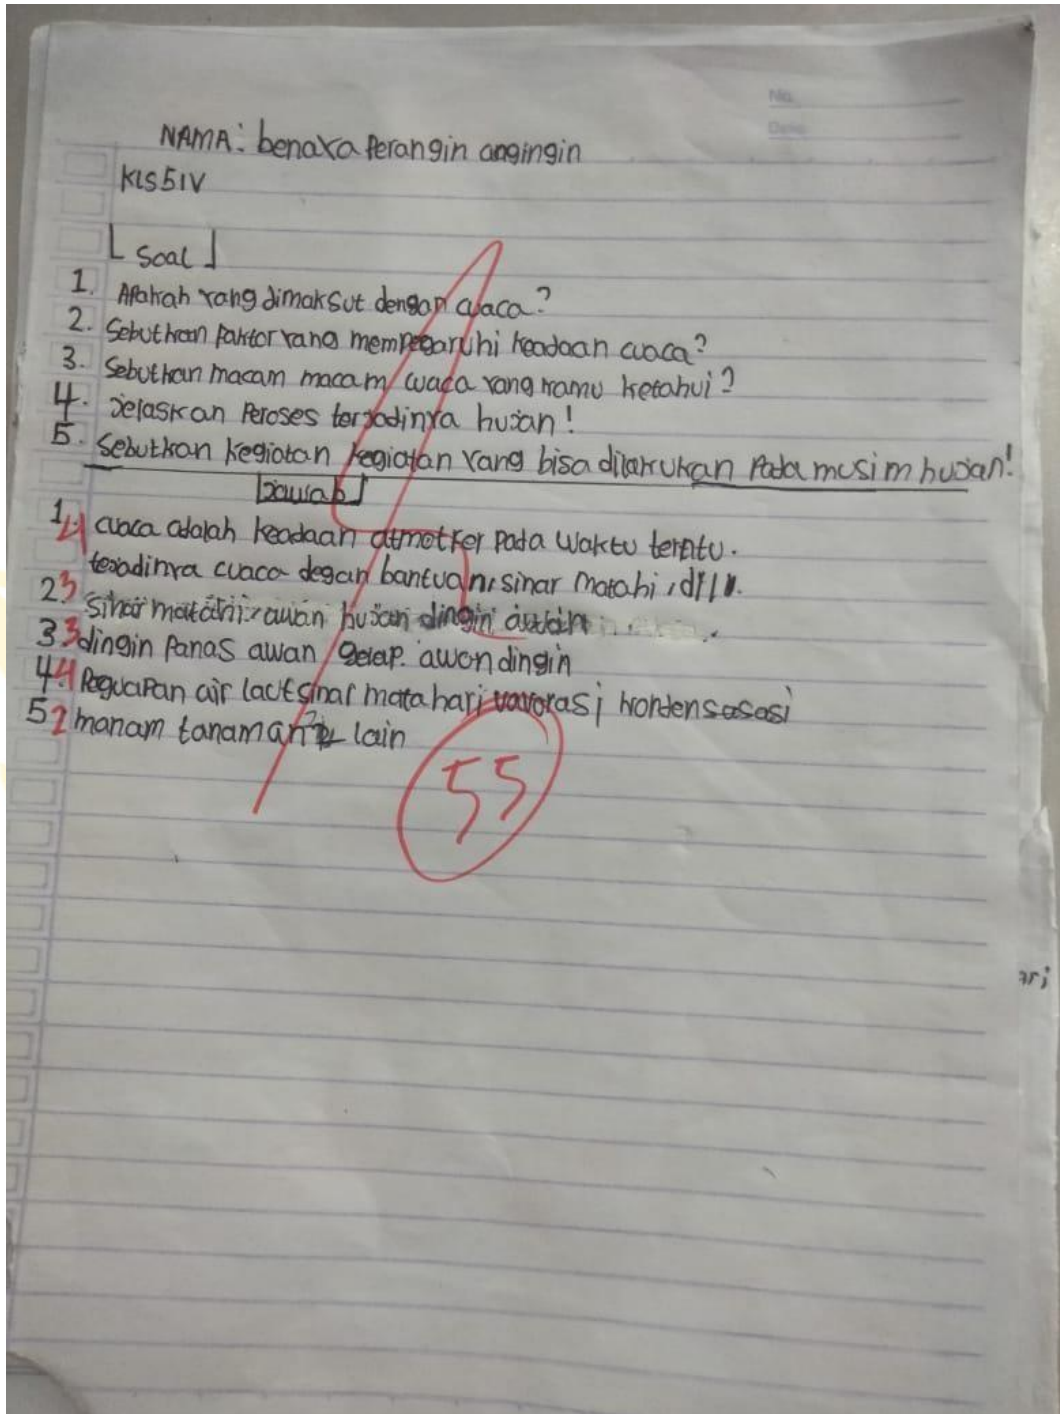 No.
Date
NAMA: benaxa Perangin angingin
KLS5IV
[Soal]
1. APakah yang dimaksut dengan cuaca?
2. Sebutkan Faktor yang mempegaruhi keadaan cuaca?
3. Sebutkan macam macam cuaca yang kamu ketahui?
4. Jelaskan Peroses terjadinya hujan!
5. Sebutkan kegiatan kegiatan yang bisa dilakukan Pada musim hujan!
[Jawab]
1. 4 cuaca adalah keadaan atmotfer Pada waktu terntu.
terjadinya cuaca degan bantuan sinar matahi, dll.
2 3 Sinar matahi awan hujan dingin
3 3 dingin Panas awan gelap. awan dingin
4. 4 Peguapan air laut sinar matahari vavorasi kondensasasi
5 2 manam tanaman lain
55
ari